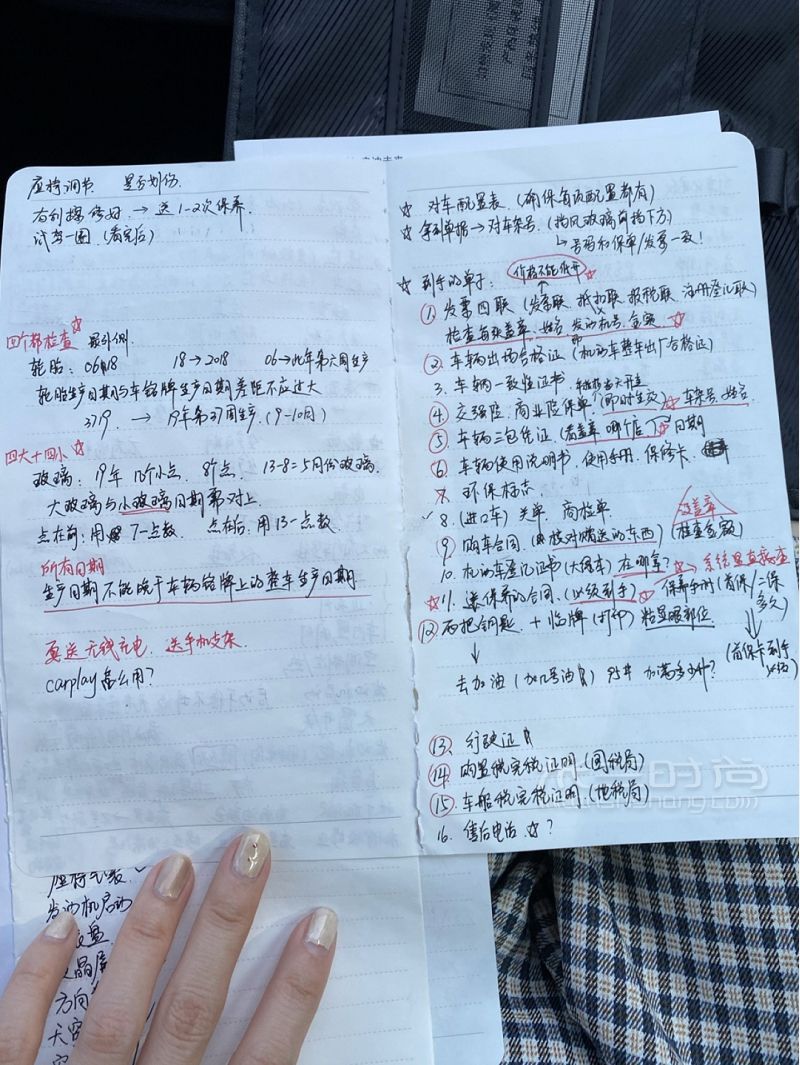 座椅调节 是否划伤
→送1-2次保养
试驾一圈(看完后)
四个都检查☆
轮胎:0618 18→2018 06→此年第六周生产
轮胎生产日期与车铭牌生产日期差距不应过大
3719 → 19年第37周生产(9-10月)
四大十四小☆
玻璃:19年 8个点 13-8=5月份玻璃
大玻璃与小玻璃日期需对上
点在前:用7-点数 点在后:用13-点数
所有日期
生产日期不能晚于车辆铭牌上的整车生产日期
要送无线充电、送手机支架
carplay怎么用?
座椅
发动机启动
方向
天窗
☆ 对车配置表(确保每项配置都有)
☆ 拿到单据→对车架号(挡风玻璃前挡下方)
↳号码和保单/发票一致!
☆ 到手的单子: 价格不能低开☆
① 发票四联(发票联、抵扣联、报税联、注册登记联)
检查每张盖章、姓名、发动机号、金额☆
② 车辆出场合格证(机动车整车出厂合格证)
3. 车辆一致性证书
④ 交强险、商业险保单(即时生效)☆车架号、姓名
⑤ 车辆三包凭证(看盖章 哪个店)日期
⑥ 车辆使用说明书、使用手册、保修卡
7. 环保标志
8. (进口车)关单、商检单
没盖章
⑨ 购车合同(核对赠送的东西)(检查金额)
10. 机动车登记证书(大绿本)在哪拿?
☆11. 送保养的合同(必须到手)☆保养手册(首保/二保多久)
⑫ 两把钥匙 + 临牌(打印)粘显眼部位
(首保卡到手
↓
去加油(加几号油)95# 加满多少升?
⑬ 行驶证
⑭ 购置税完税证明(国税局)
⑮ 车船税完税证明(地税局)
16. 售后电话☆?